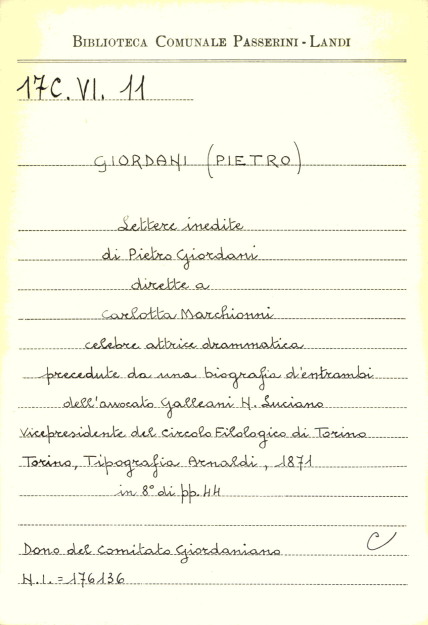 BIBLIOTECA COMUNALE PASSERINI - LANDI
17C. VI. 11
GIORDANI (PIETRO)
Lettere inedite
di Pietro Giordani
dirette a
Carlotta Marchionni
celebre attrice drammatica
precedute da una biografia d'entrambi
dell'avvocato Galleani N. Luciano
Vicepresidente del Circolo Filologico di Torino
Torino, Tipografia Arnaldi, 1871
in 8° di pp. 44
C
Dono del Comitato Giordaniano
N.I. = 176136